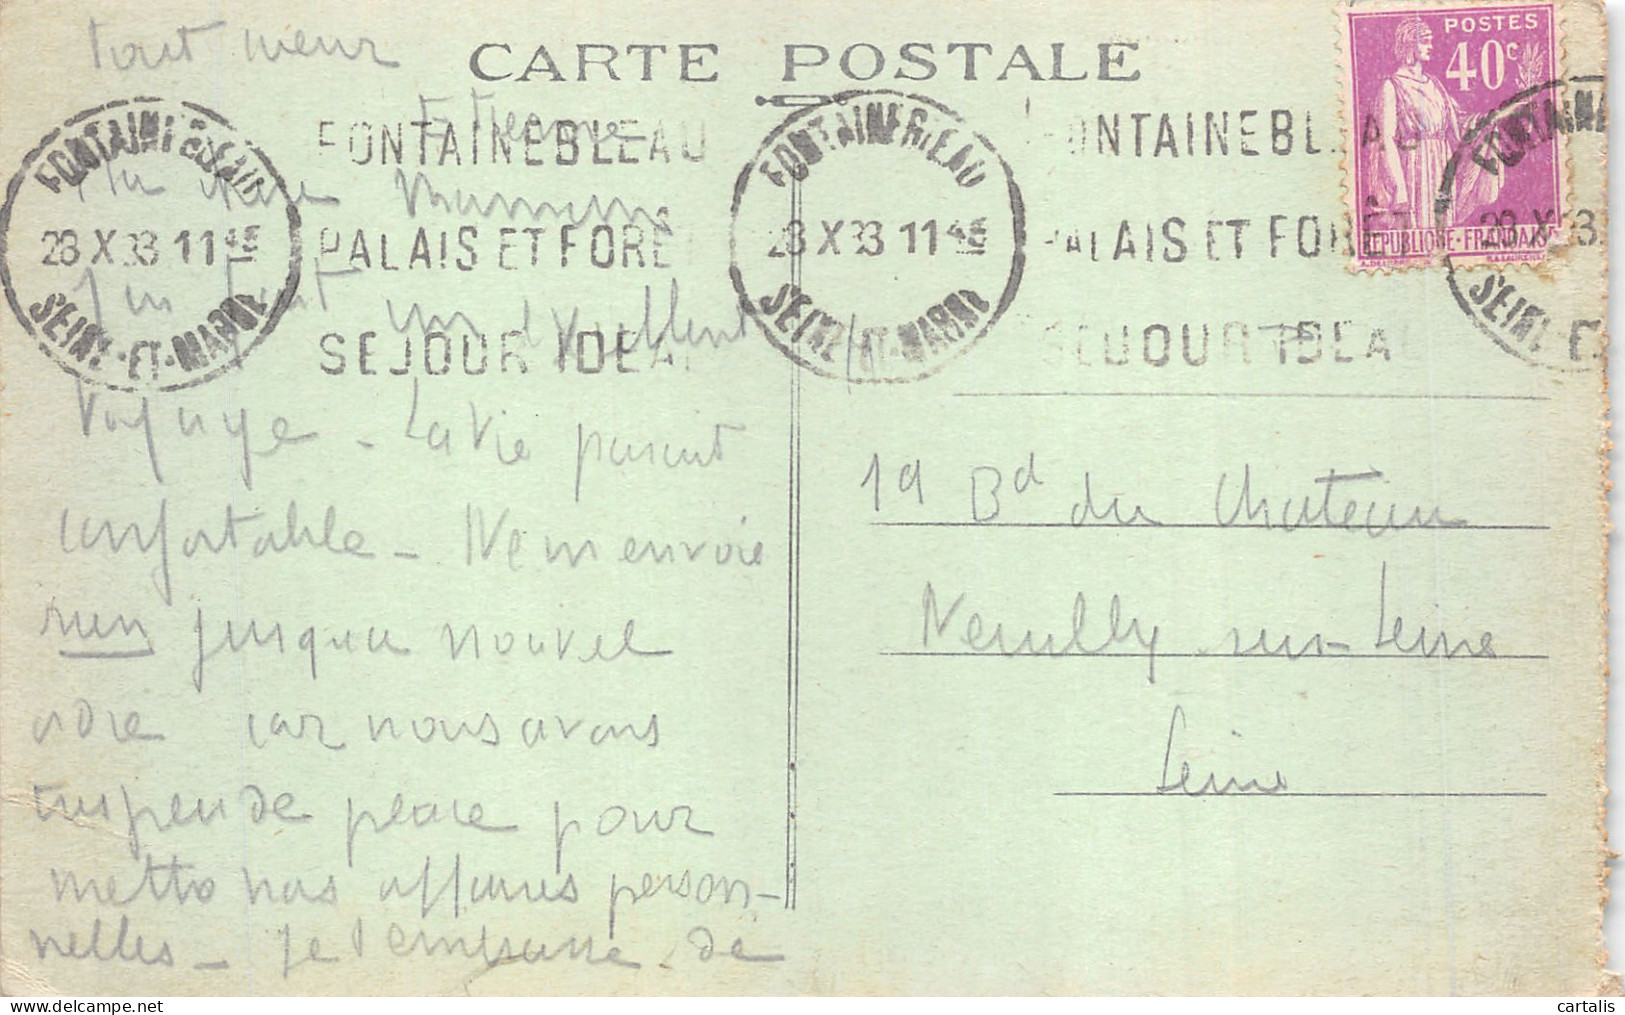 tout
CARTE POSTALE
POSTES
40c
REPUBLIQUE FRANÇAISE
FONTAINEBLEAU
SEINE-ET-MARNE
28 X 33 11 45
FONTAINEBLEAU
PALAIS ET FORÊT
SEJOUR IDEAL
FONTAINEBLEAU
SEINE-ET-MARNE
28 X 33 11 45
FONTAINEBLEAU
PALAIS ET FORÊT
SEJOUR IDEAL
FONTAINE
28 X 3
SEINE-E
Etienne
Ma Maman
J'ai fait un excellent
voyage - La vie parait
confortable - Ne m'envoie
rien jusqu'au nouvel
ordre car nous avons
suspendre place pour
mettre nos affaires person-
nelles - Je t'embrasse de
19 Bd du Chateau
Neuilly sur-Seine
Seine
cartalis